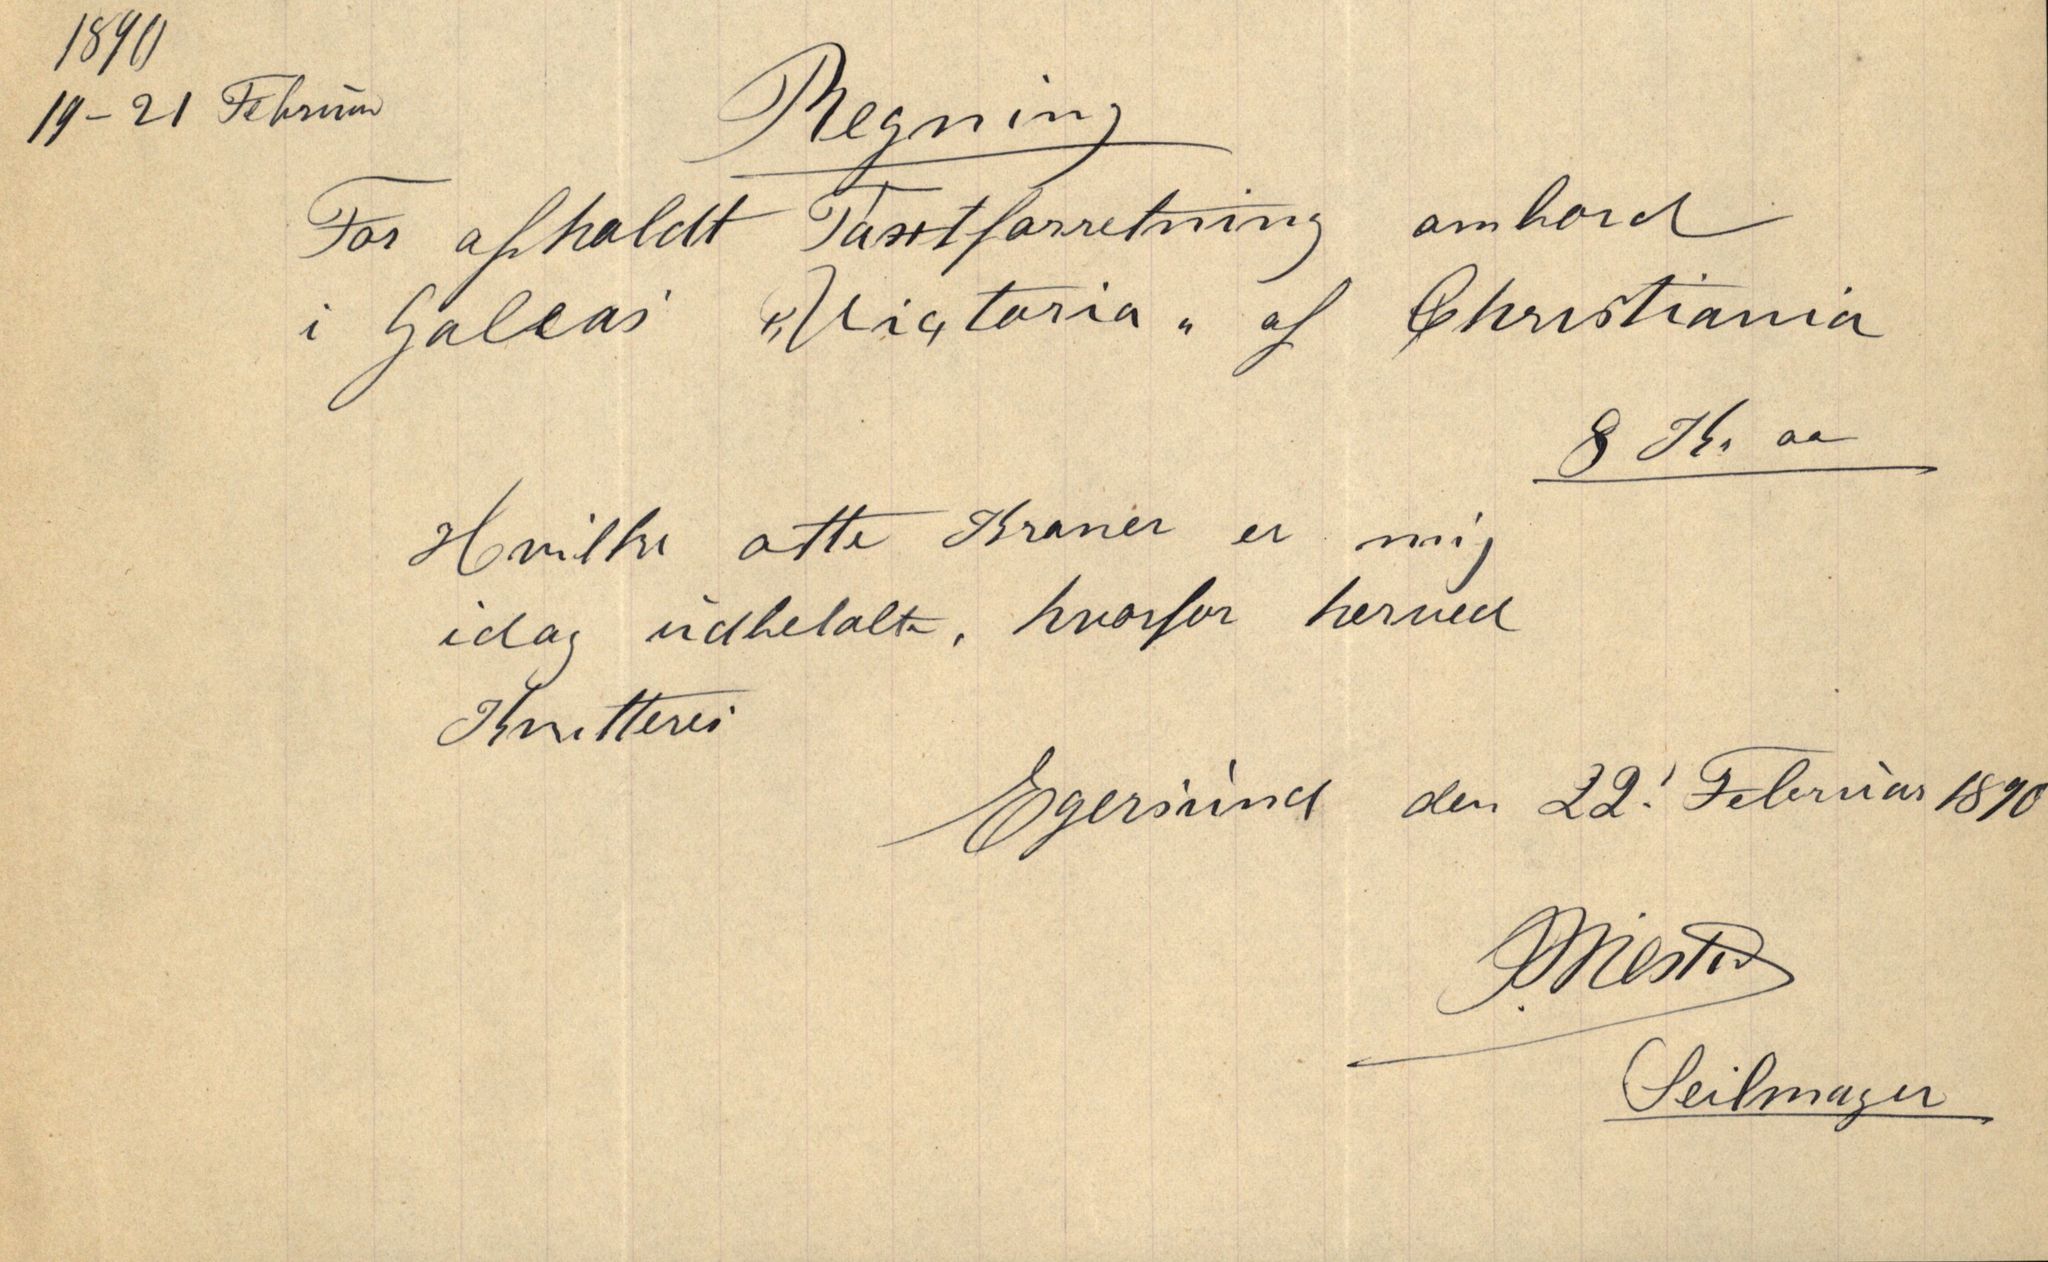 1890
19-21 Februar
Regning
For afholdt Taxtforretning ombord
i Galeas "Victoria" af Christiania
8 Kr. oo
Hvilke otte Kroner er mig
idag udbetalte, hvorfor herved
Kvitteres
Egersund den 22. Februar 1890
Seilmager